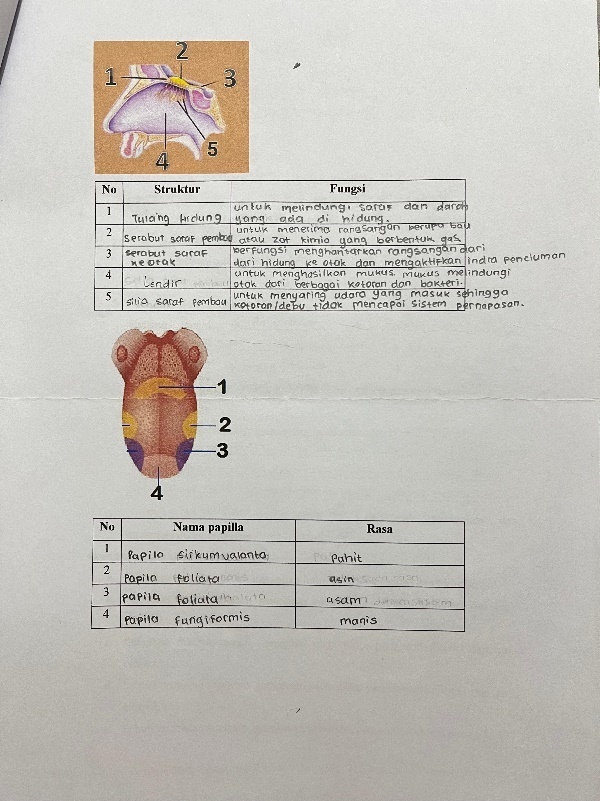 2
1
3
5
4
No Struktur Fungsi
1 Tulang hidung untuk melindungi saraf dan darah
yang ada di hidung.
2 Serabut saraf pembau untuk menerima rangsangan berupa bau
atau zat kimia yang berbentuk gas.
3 serabut saraf ke otak berfungsi menghantarkan rangsangan dari
dari hidung ke otak dan mengaktifkan indra penciuman
4 Lendir untuk menghasilkan mukus. mukus melindungi
otak dari berbagai kotoran dan bakteri.
5 silia saraf pembau untuk menyaring udara yang masuk sehingga
kotoran/debu tidak mencapai sistem pernapasan.
1
2
3
4
No Nama papilla Rasa
1 Papila sirkumvalanta Pahit
2 Papila foliata asin
3 papila foliata asam
4 Papila fungiformis manis